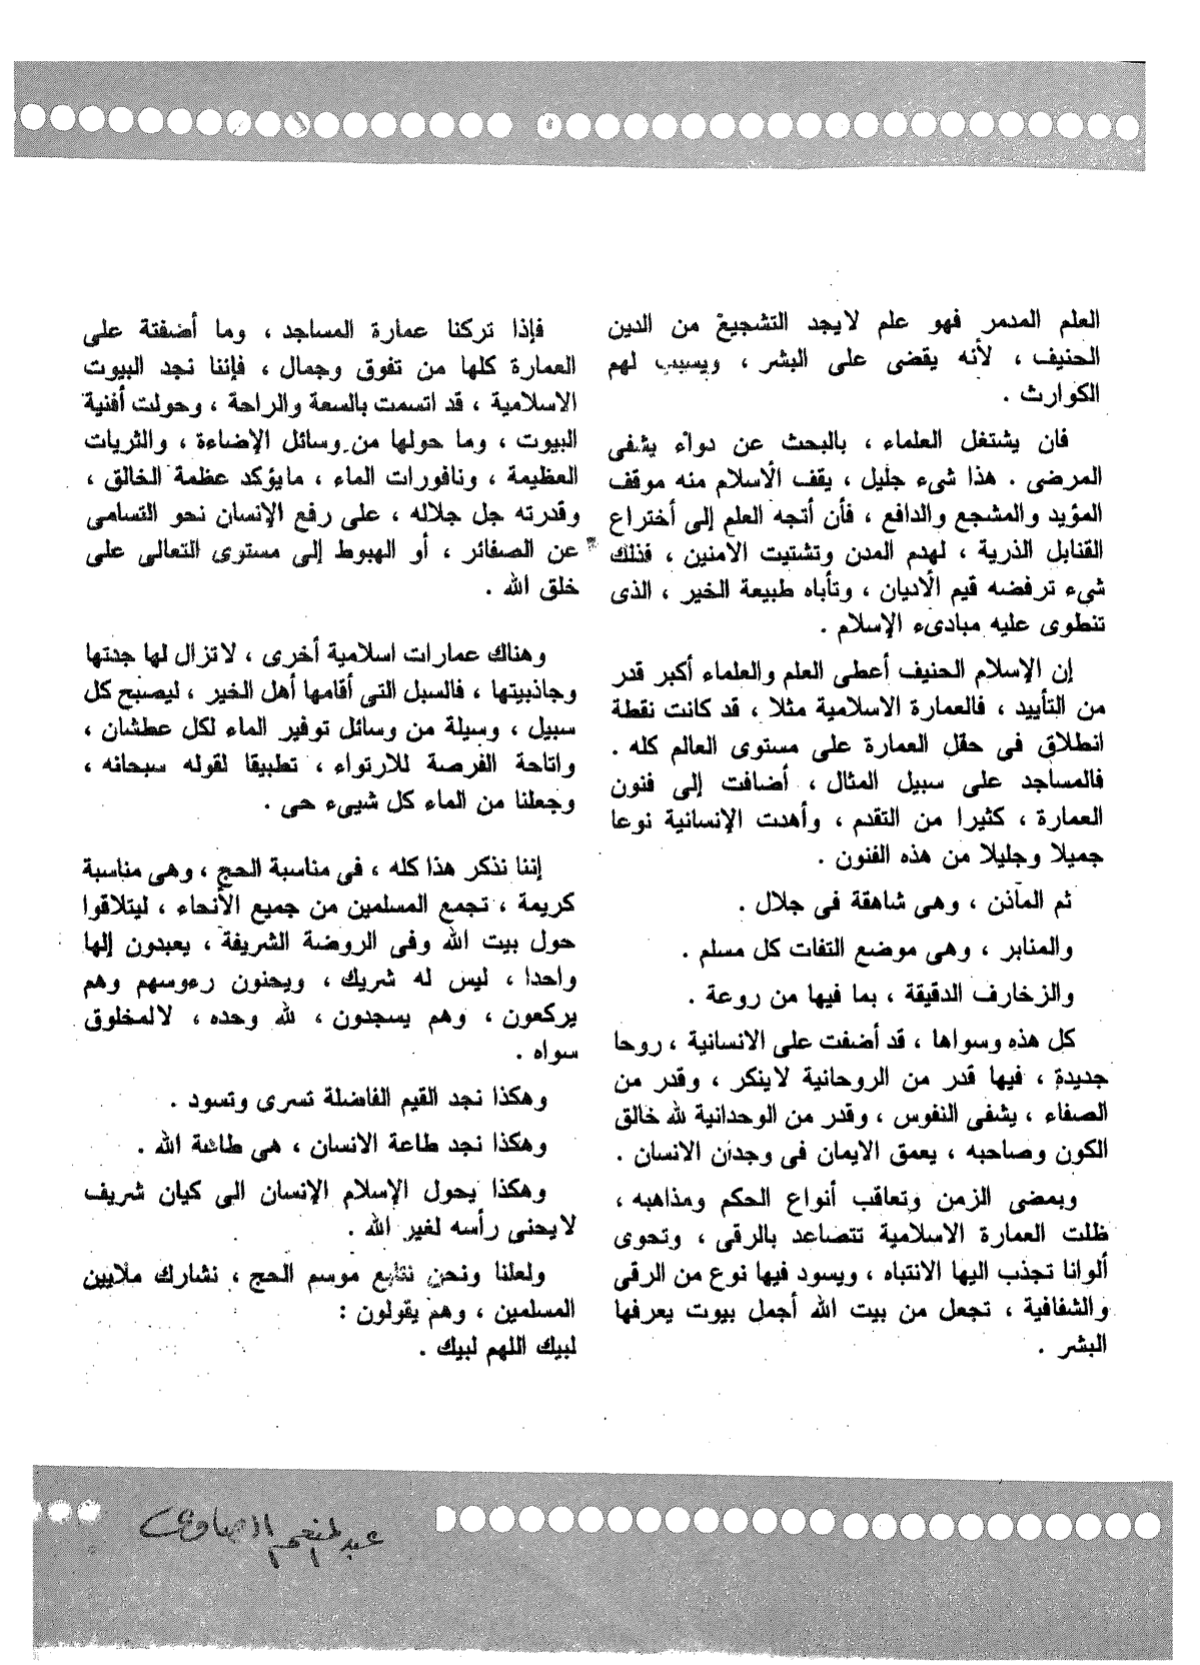 العلم المدمر فهو علم لايجد التشجيع من الدين
الحنيف ، لأنه يقضى على البشر ، ويسبب لهم
الكوارث .
فان يشتغل العلماء ، بالبحث عن دواء يشفى
المرضى . هذا شىء جليل ، يقف الأسلام منه موقف
المؤيد والمشجع والدافع ، فأن أتجه العلم إلى أختراع
القنابل الذرية ، لهدم المدن وتشتيت الآمنين ، فذلك
شىء ترفضه قيم الأديان ، وتأباه طبيعة الخير ، الذى
تنطوى عليه مبادىء الإسلام .
إن الإسلام الحنيف أعطى العلم والعلماء أكبر قدر
من التأييد ، فالعمارة الاسلامية مثلا ، قد كانت نقطة
انطلاق فى حقل العمارة على مستوى العالم كله .
فالمساجد على سبيل المثال ، أضافت إلى فنون
العمارة ، كثيرا من التقدم ، وأهدت الإنسانية نوعا
جميلا وجليلا من هذه الفنون .
ثم المآذن ، وهى شاهقة فى جلال .
والمنابر ، وهى موضع التفات كل مسلم .
والزخارف الدقيقة ، بما فيها من روعة .
كل هذه وسواها ، قد أضفت على الانسانية ، روحا
جديدة ، فيها قدر من الروحانية لاينكر ، وقدر من
الصفاء ، يشفى النفوس ، وقدر من الوحدانية لله خالق
الكون وصاحبه ، يعمق الايمان فى وجدان الانسان .
وبمضى الزمن وتعاقب أنواع الحكم ومذاهبه ،
ظلت العمارة الاسلامية تتصاعد بالرقى ، وتحوى
ألوانا تجذب اليها الانتباه ، ويسود فيها نوع من الرقى
والشفافية ، تجعل من بيت الله أجمل بيوت يعرفها
البشر .
فإذا تركنا عمارة المساجد ، وما أضفتة على
العمارة كلها من تفوق وجمال ، فإننا نجد البيوت
الاسلامية ، قد اتسمت بالسعة والراحة ، وحولت أفنية
البيوت ، وما حولها من وسائل الإضاءة ، والثريات
العظيمة ، ونافورات الماء ، مايؤكد عظمة الخالق ،
وقدرته جل جلاله ، على رفع الإنسان نحو التسامى
عن الصغائر ، أو الهبوط إلى مستوى التعالى على
خلق الله .
وهناك عمارات اسلامية أخرى ، لاتزال لها جدتها
وجاذبيتها ، فالسبل التى أقامها أهل الخير ، ليصبح كل
سبيل ، وسيلة من وسائل توفير الماء لكل عطشان ،
واتاحة الفرصة للارتواء ، تطبيقا لقوله سبحانه ،
وجعلنا من الماء كل شيىء حى .
إننا نذكر هذا كله ، فى مناسبة الحج ، وهى مناسبة
كريمة ، تجمع المسلمين من جميع الأنحاء ، ليتلاقوا
حول بيت الله وفى الروضة الشريفة ، يعبدون إلها
واحدا ، ليس له شريك ، ويحنون رءوسهم وهم
يركعون ، وهم يسجدون ، لله وحده ، لالمخلوق
سواه .
وهكذا نجد القيم الفاضلة تسرى وتسود .
وهكذا نجد طاعة الانسان ، هى طاعة الله .
وهكذا يحول الإسلام الإنسان الى كيان شريف
لايحنى رأسه لغير الله .
ولعلنا ونحن نتابع موسم الحج ، نشارك ملايين
المسلمين ، وهم يقولون :
لبيك اللهم لبيك .
عبد المنعم الصاوى